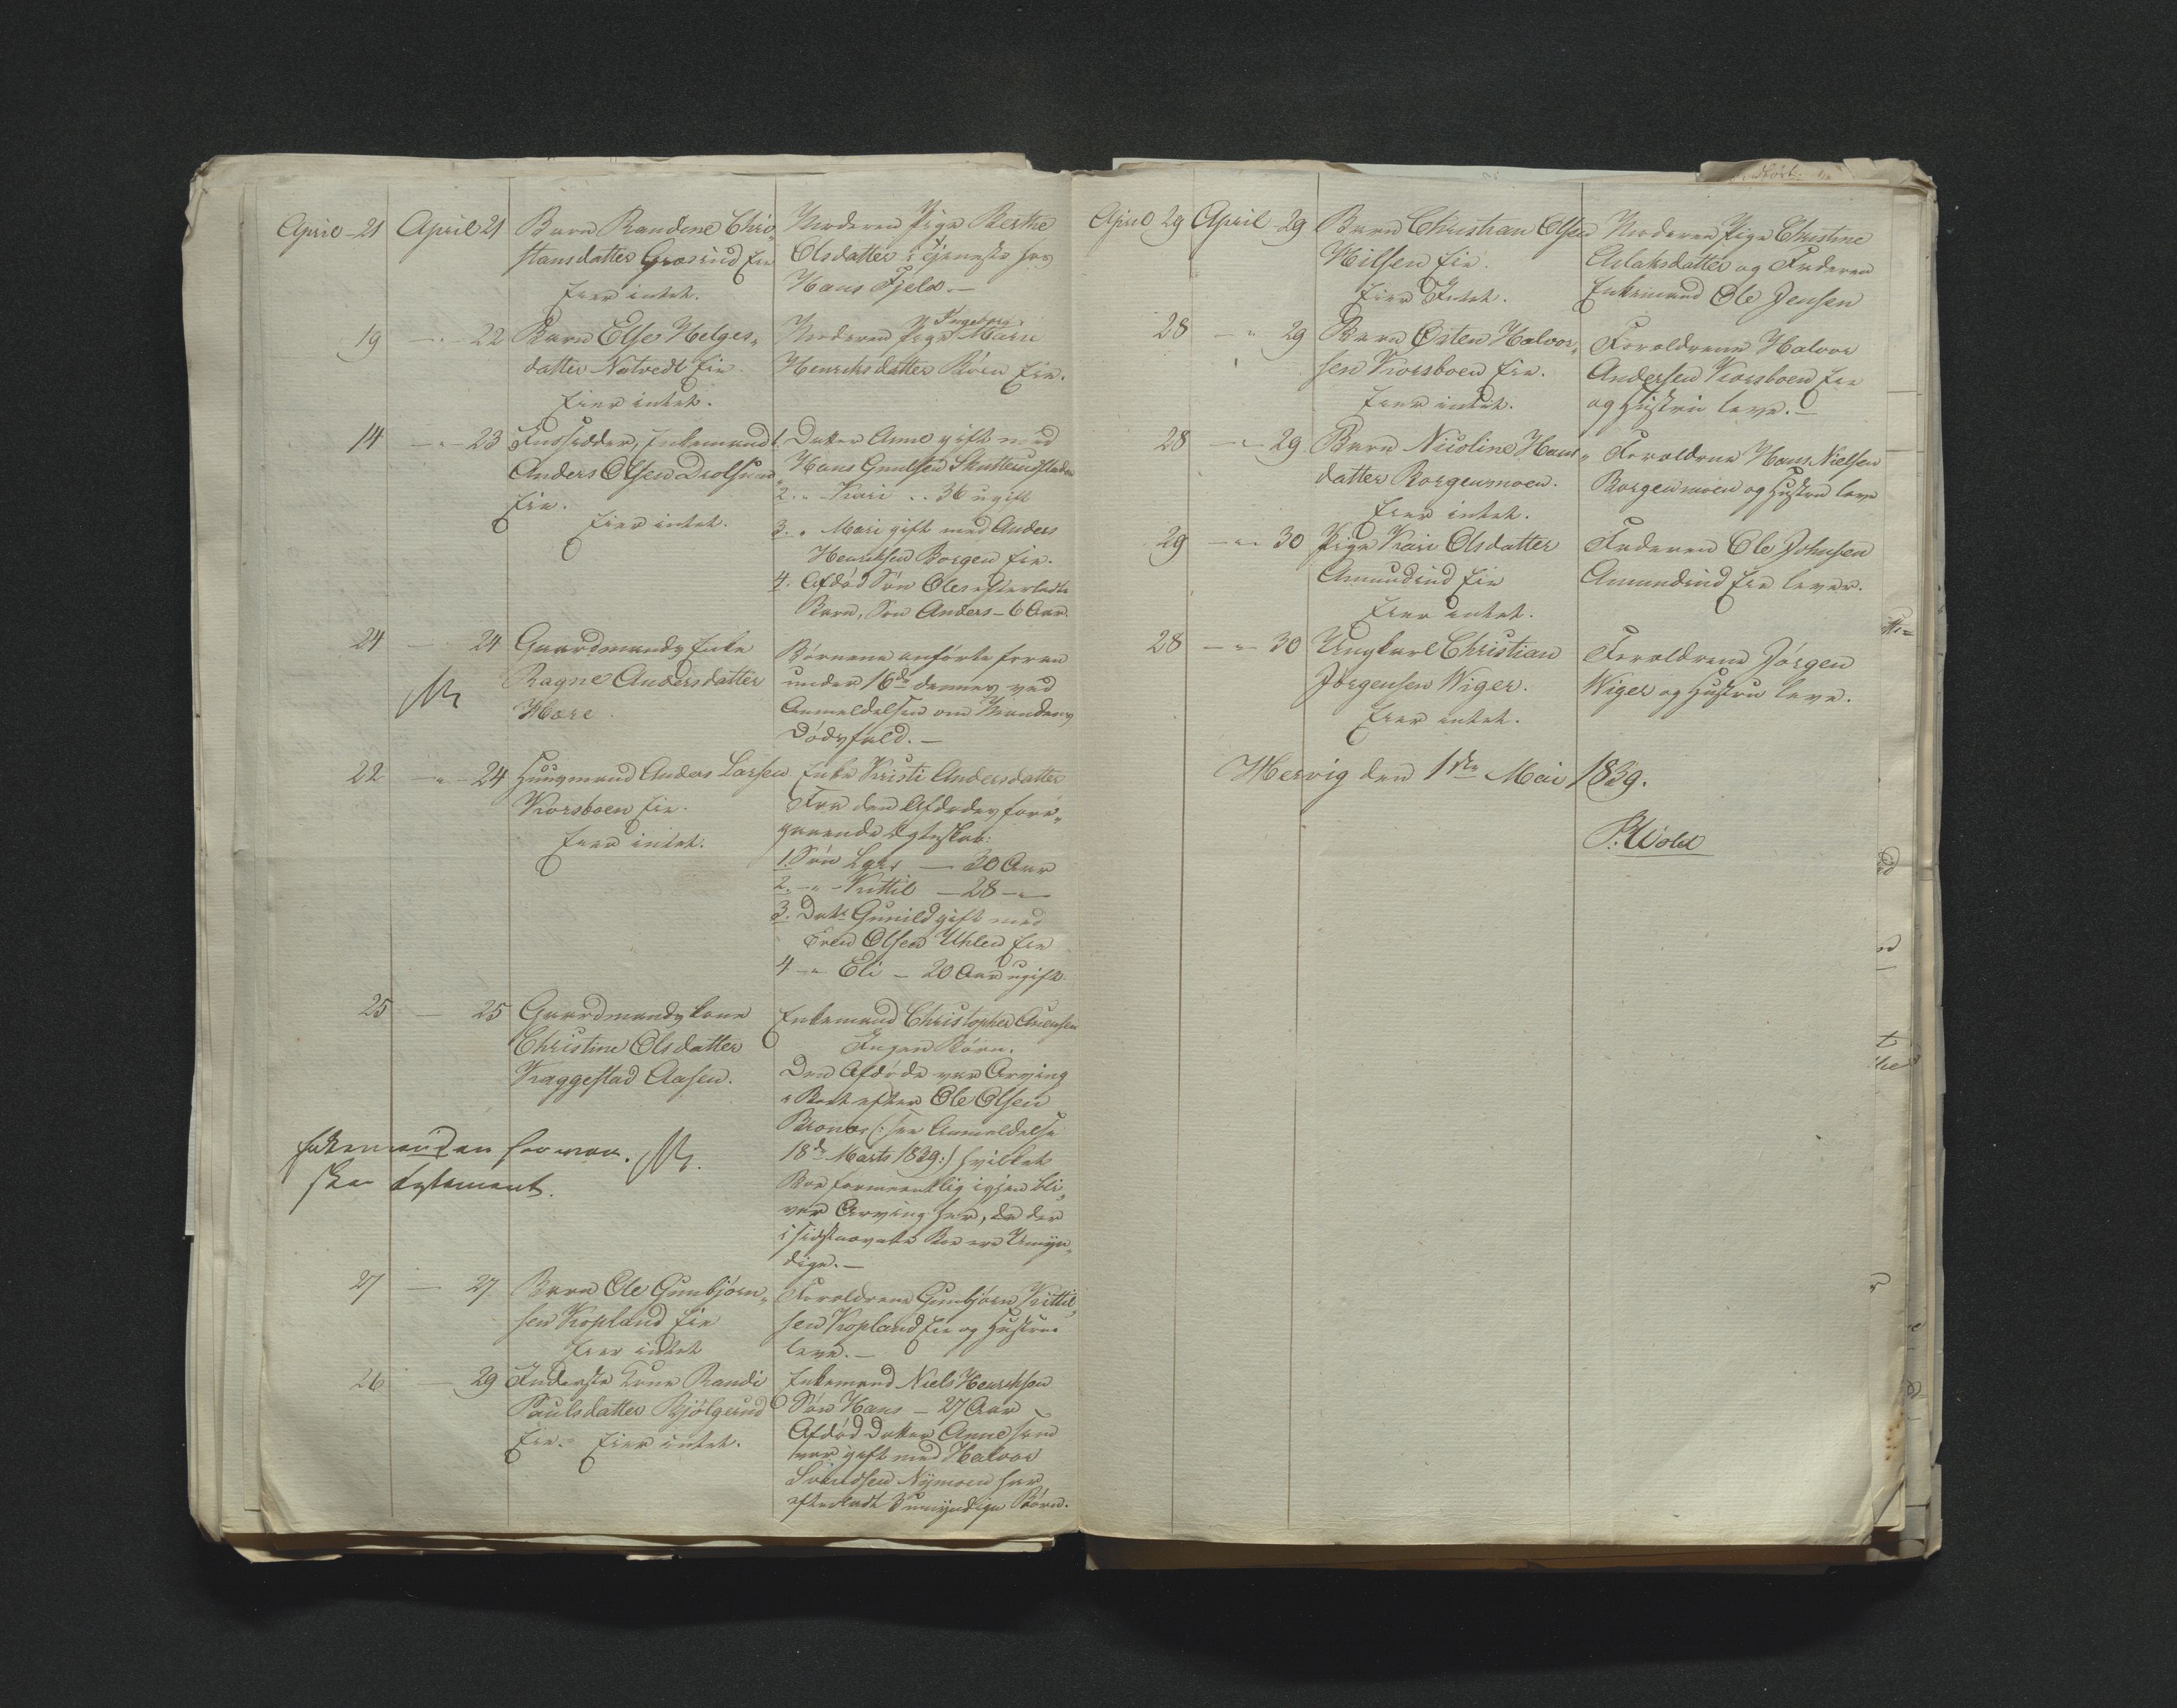 April - 21 April 21 Barn Randine Chri„
stansdatter Grøsrud Eie
Eier intet.
Moderen Pige Berthe
Olsdatter i Tjeneste hos
Hans Fjeld. —
19 — „ — 22 Barn Else Helges„
datter Natvedt Eie
Eier intet.
Ingeborg
Moderen Pige Marie
Henriksdatter Rören Eie.
14 — „ — 23 Huusfader, Enkemand
Anders Olsen
Eie.
Eier intet.
1. Datter Anne gift med
Hans Gundsen
2. „ Kari .. 36 ugift
3. „ Mari gift med Anders
Henriksen Borgen Eie.
4. Afdød Søn Oles efterladte
Barn, Søn Anders — 6 Aar.
24 — 24 Gaardmands Enke
Ragne Andersdatter
Hære
Börnene anförte foran
under 16de dennes ved
Anmeldelsen om Mandens
Dödsfald. —
22 — „ — 24 Huusmand Anders Larsen
Korsboen Eie.
Eier intet.
Enke Kristi Andersdatter
Fra den Afdødes fore„
gaaende Ægteskab:
1. Søn Lars — 30 Aar
2. — „ — Kittil — 28 — „
3. Datr Gunild gift med
Even Olsen Uhlen Eie
4 — „ Eli — 20 Aar ugift.
25 — 25 Gaardmands kone
Christine Olsdatter
Kaggestad Aasen.
Enkemand Christopher
Ingen Börn.
Den Afdöde var Arving
i Boet efter Ole Olsen
(: see Anmeldelse
18de Marts 1839 :) hvilket
Boe formeentlig igjen bli„
ver Arving her, da der
i sidstnævnte Boe ere Umyn„
dige. —
Enkemanden
Testament.
27 — 27 Barn Ole Gunbjörn„
sen Kopland Eie
Eier intet
Forældrene Gunbjörn Kittil„
sen Kopland Eie og Hustrue
leve. —
26 — 29 Inderste Kone Randi
Paulsdatter Bjölgerud
Eie. Eier intet.
Enkemand Niels Henriksen
Søn Hans — 27 Aar
Afdød Datter Anne som
var gift med Halvor
Svendsen Nÿmoen har
efterladt 3 umyndige Börn.
April 29 April - 29 Barn Christian Olsen
Nilsen Eie.
Eier Intet.
Moderen Pige Christine
Aslaksdatter og Faderen
Enkemand Ole Jensen
28 — „ 29 Barn Østen Halvor„
sen Korsboen Eie.
Eier intet.
Forældrene Halvor
Andersen Korsboen Eie
og Hustru leve. —
28 — „ — 29 Barn Nicoline Hans„
datter Borgenmoen.
Eier intet.
Forældrene Hans Nielsen
Borgenmoen og Hustru leve
29 — „ — 30 Pige Kari Olsdatter
Amundrud Eie
Eier intet.
Faderen Ole Johnsen
Amundrud Eie lever.
28 — „ — 30 Ungkarl Christian
Jørgensen Wiger.
Eier intet.
Forældrene Jörgen
Wiger og Hustru leve.
Hervig den 1ste Mai 1839.
P. Wold